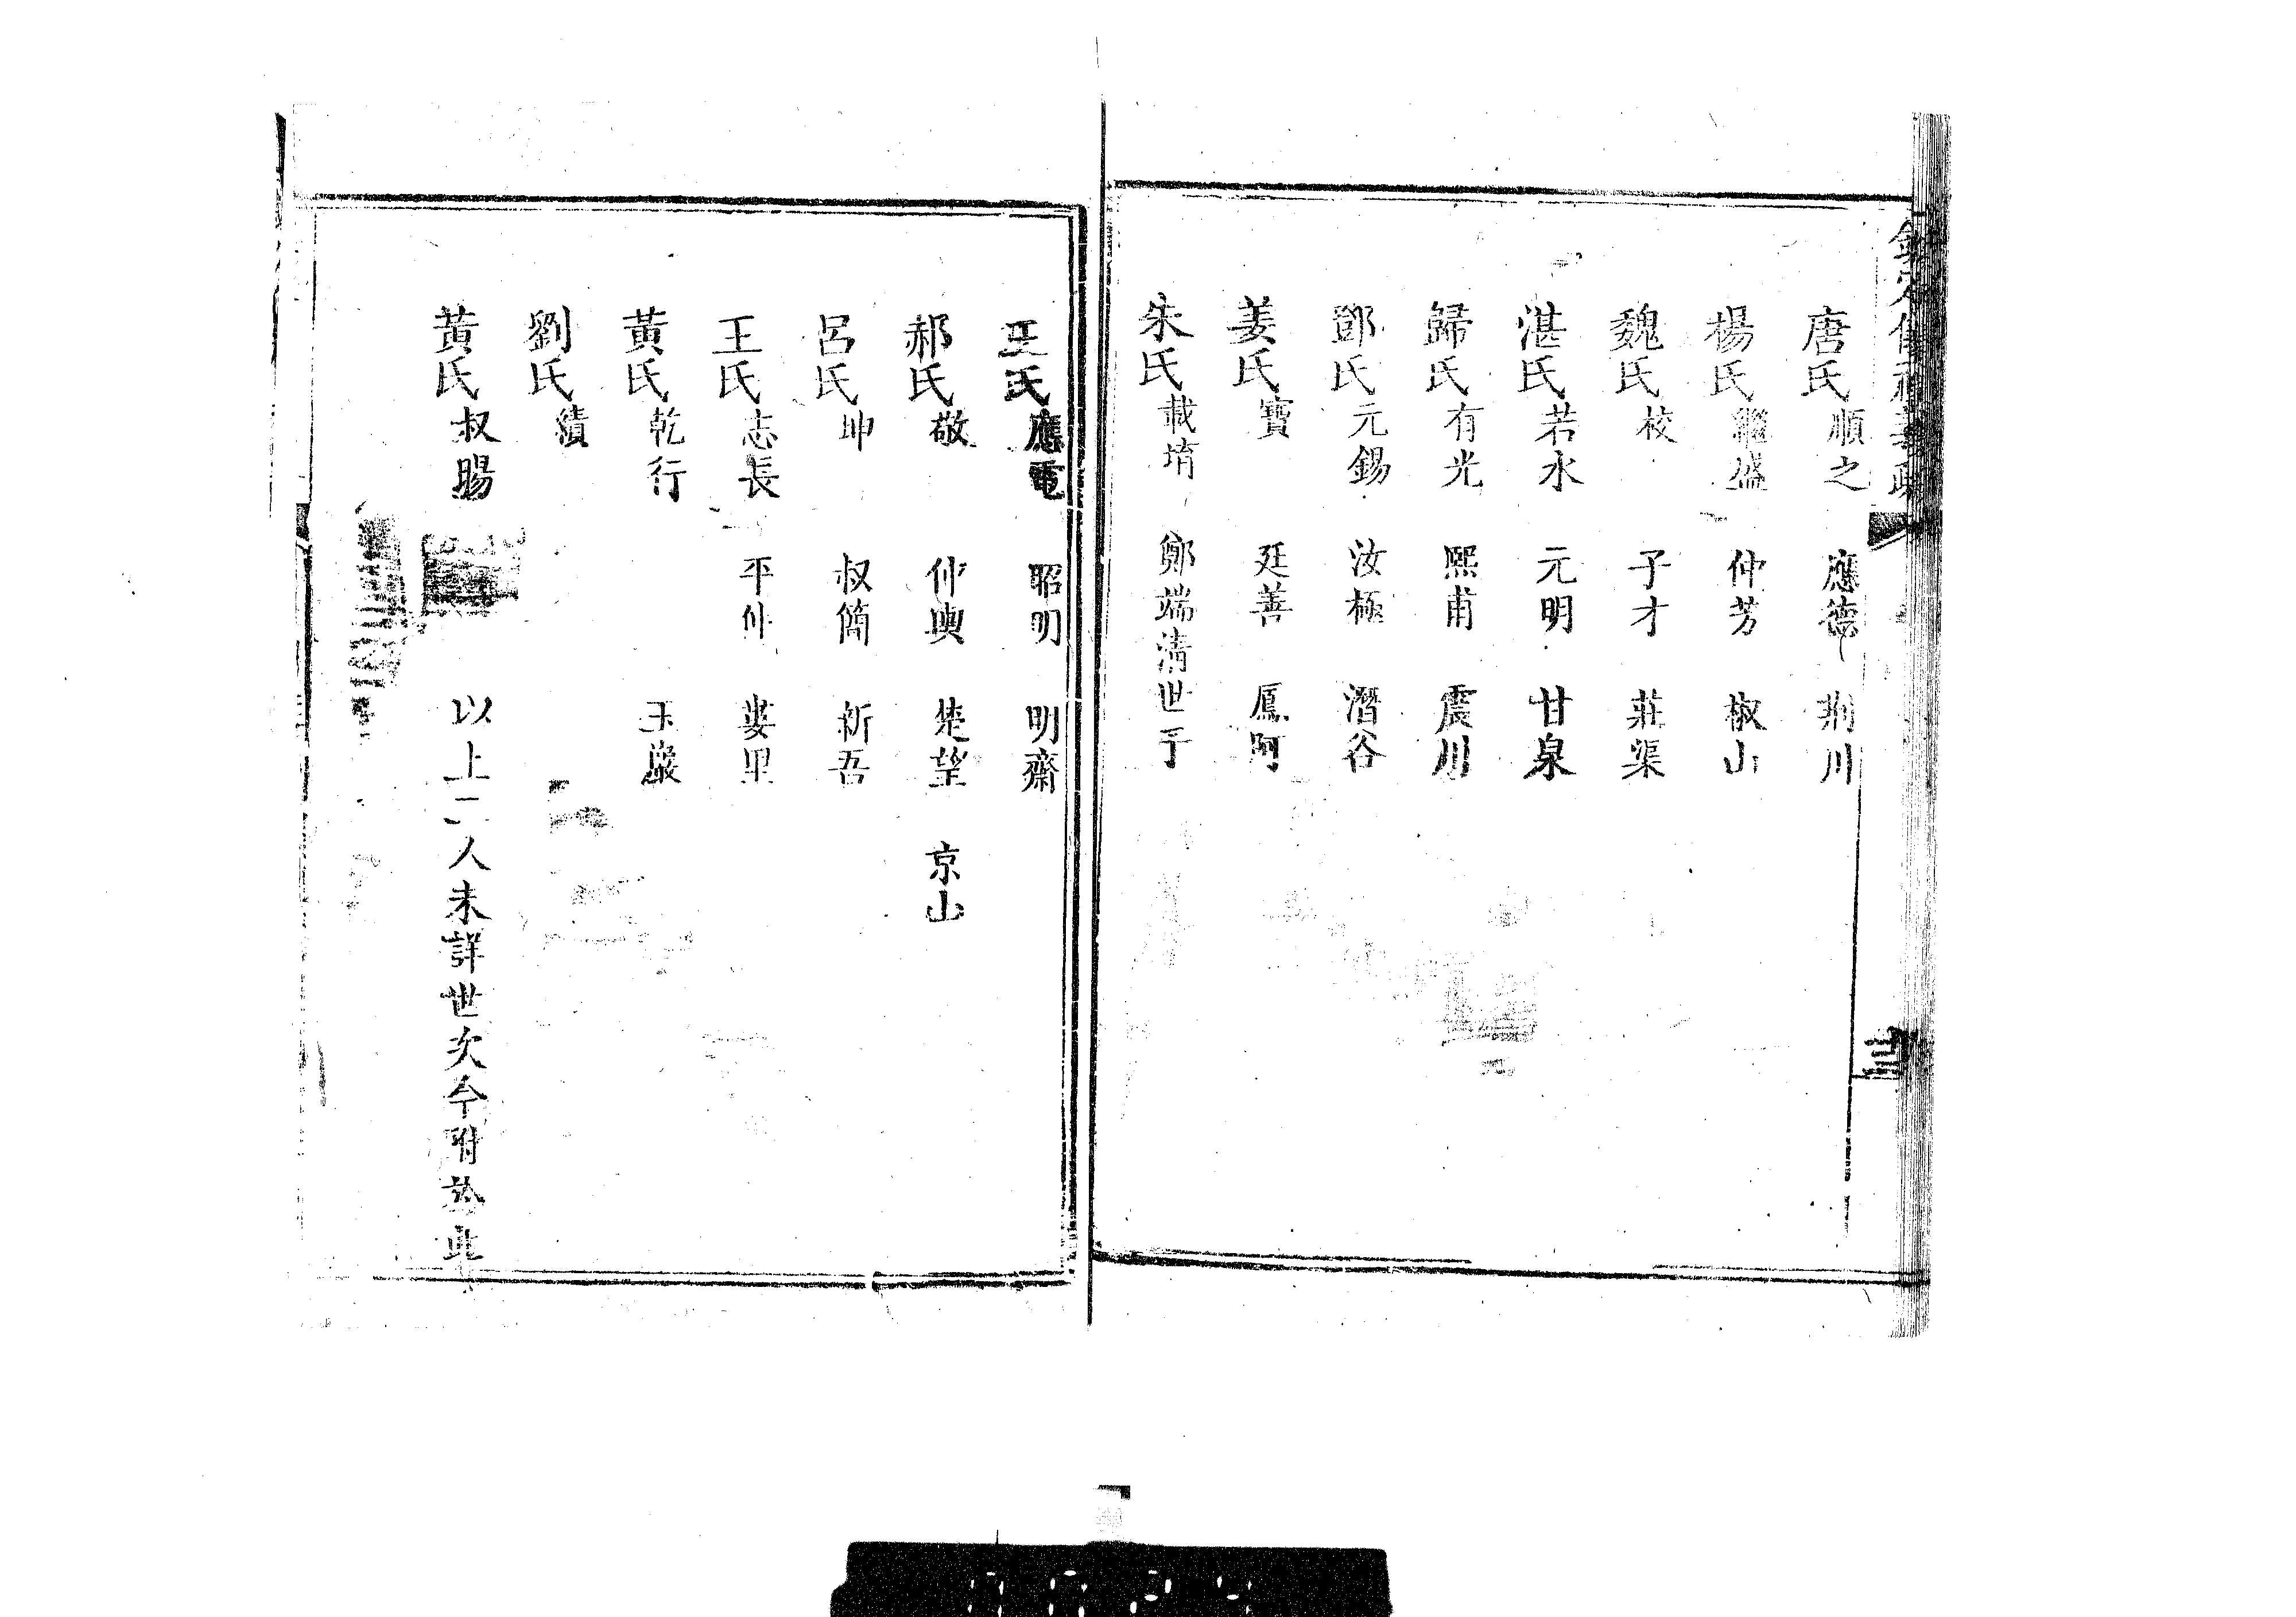 唐氏順之 應德 荆川
楊氏繼盛 仲芳 椒山
魏氏校 子才 莊渠
湛氏若水 元明 甘泉
歸氏有光 熙甫 震川
鄧氏元錫 汝極 潛谷
姜氏寶 廷善 鳳阿
朱氏載堉 鄭端清世子
王氏應電 昭明 明齋
郝氏敬 仲輿 楚望 京山
呂氏坤 叔簡 新吾
王氏志長 平仲 婁里
黃氏乾行 玉巖
劉氏績
黃氏叔暘 以上二人未詳世次今附於此